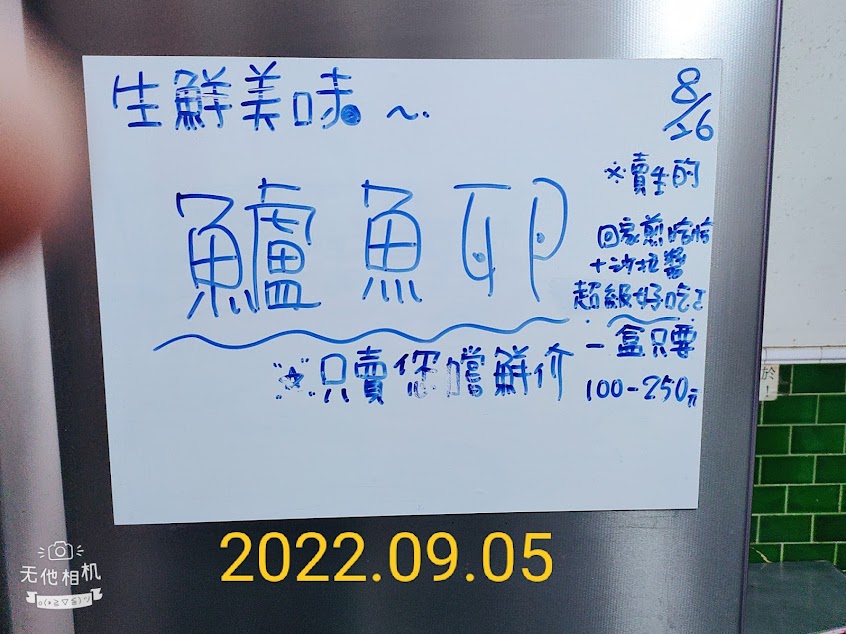 生鮮美味。～..
8/26
鱸魚卵
※賣生的
回家煎恰恰
+沙拉醬
超級好吃I
一盒只要
100-250元
※只賣你嚐鮮价
於
!
2022.09.05
无他相机